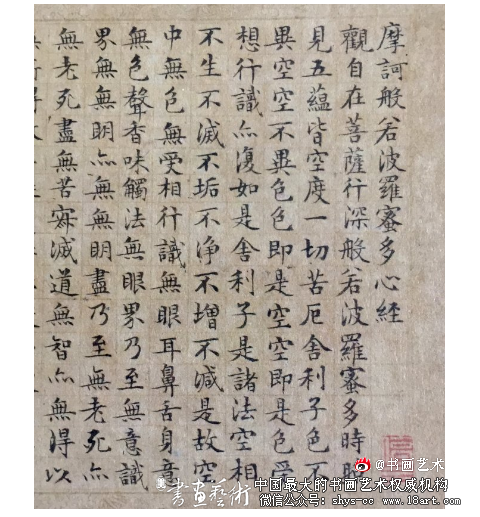 摩訶般若波羅蜜多心經
觀自在菩薩行深般若波羅蜜多時照
見五蘊皆空度一切苦厄舍利子色不
異空空不異色色即是空空即是色受
想行識亦復如是舍利子是諸法空相
不生不滅不垢不净不增不減是故空
中無色無受相行識無眼耳鼻舌身意
無色聲香味觸法無眼界乃至無意識
界無無明亦無無明盡乃至無老死亦
無老死盡無苦寂滅道無智亦無得以
@书画艺术
書畫藝術
中国最大的书画艺术权威机构
微信公众号: shys-cc www.18art.com